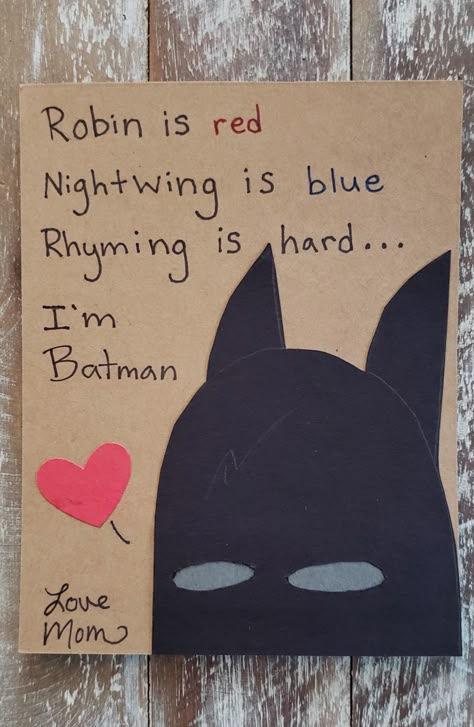 Robin is red
Nightwing is blue
Rhyming is hard...
I'm
Batman
Love
Mom